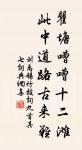 瞿塘嘈嘈十二滩
此中道路古来难
刘禹锡竹枝词九首其
七词典网书